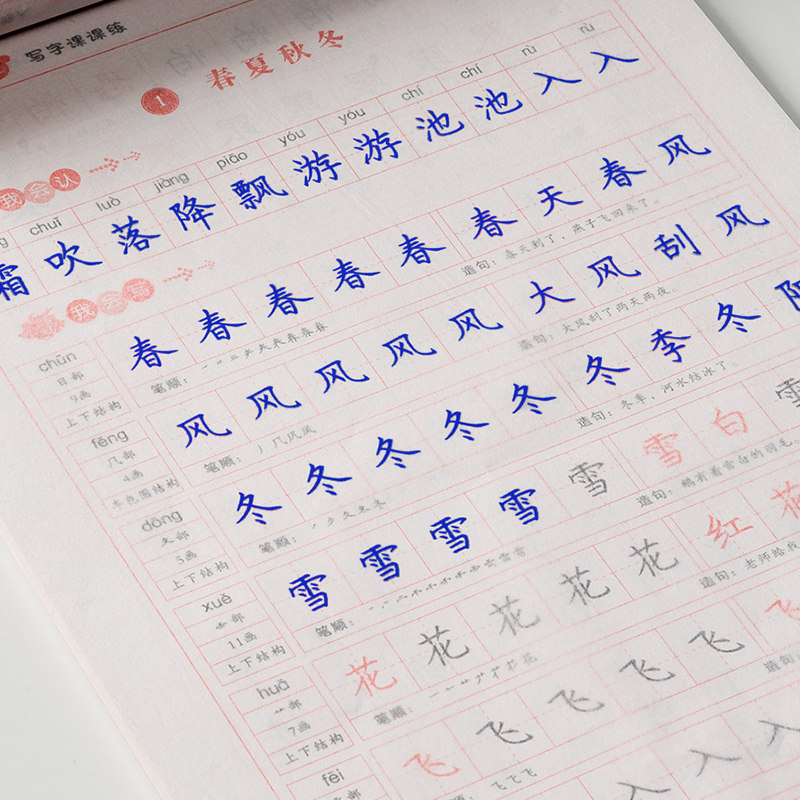 写字课课练
1 春夏秋冬
我会认
chuī luò jiàng piāo yóu yóu chí chí rù rù
霜 吹 落 降 飘 游 游 池 池 入 入
我会写
chūn
日部
9画
上下结构
春 春 春 春 春 春 天 春 风
笔顺：
造句：春天到了，燕子飞回来了。
fēng
几部
4画
半包围结构
风 风 风 风 风 大 风 刮 风
笔顺：
造句：大风刮了两天两夜。
dōng
夂部
5画
上下结构
冬 冬 冬 冬 冬 冬 季 冬
笔顺：
造句：冬季，河水结冰了。
xuě
雨部
11画
上下结构
雪 雪 雪 雪 雪 雪 白 雪
笔顺：
造句：鹅有着雪白的羽毛。
huā
艹部
7画
上下结构
花 花 花 花 花 红 花
笔顺：
造句：老师给我
fēi
飞 飞 飞 飞 飞 飞
笔顺：
造句：
入 入 入